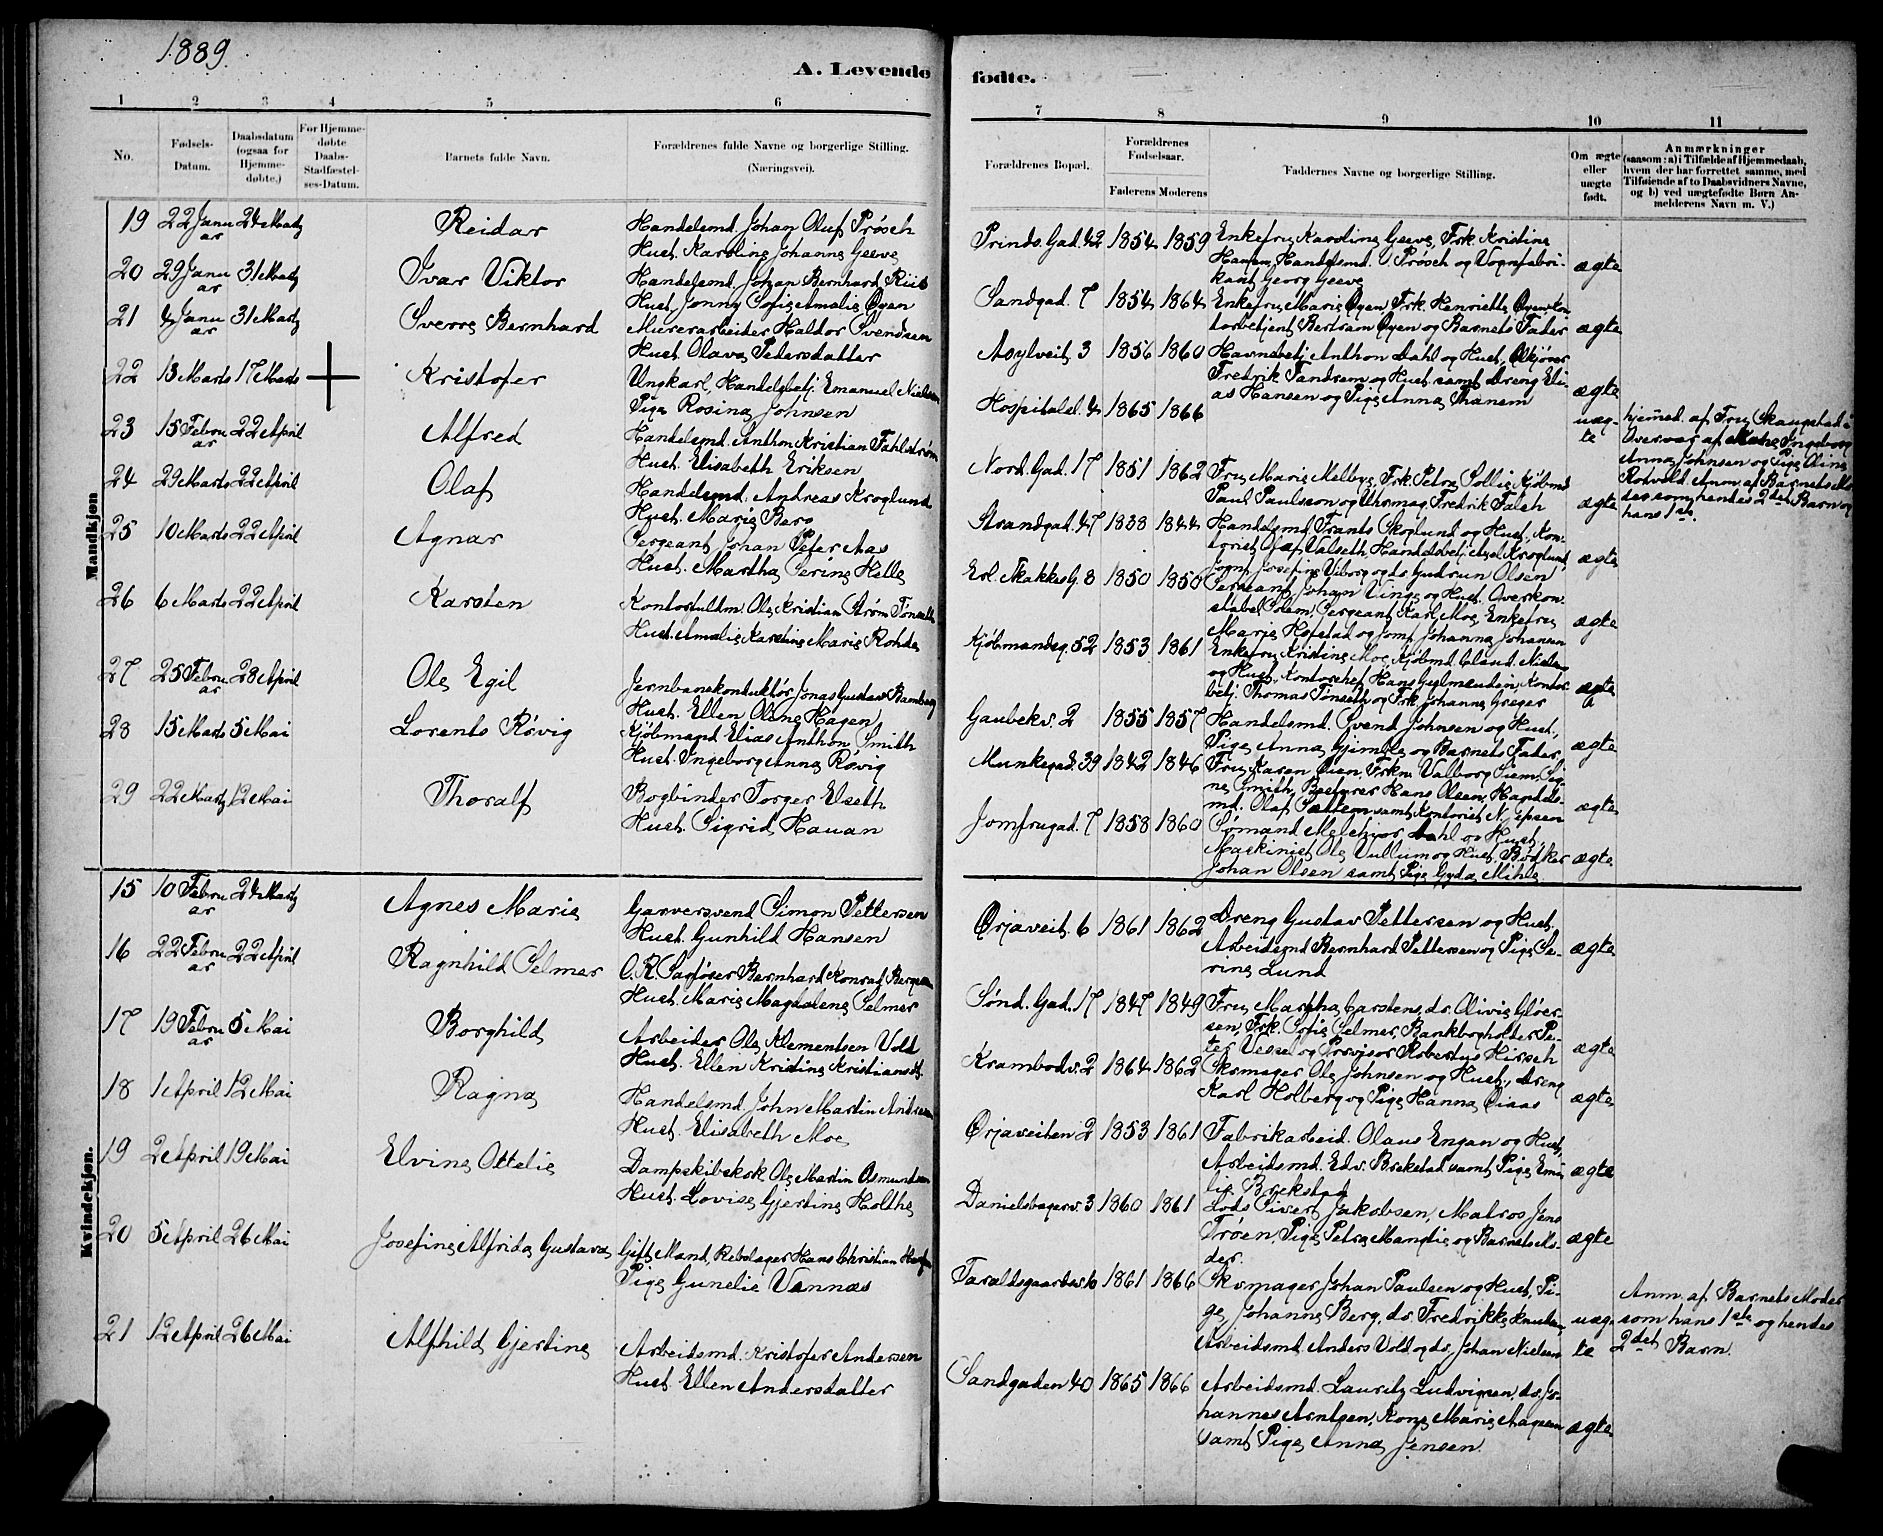 1889.
A. Levende
fødte.
1 2 3 4 5 6
7 8 9 10 11
No.
Fødsels-Datum.
Daabsdatum (ogsaa for Hjemme-døbte.)
For Hjemme-døbte Daabs-Stadfæstel-ses-Datum.
Barnets fulde Navn.
Forældrenes fulde Navne og borgerlige Stilling.
(Næringsvei).
Forældrenes Bopæl.
Forældrenes Fødselsaar.
Faderens Moderens
Faddernes Navne og borgerlige Stilling.
Om ægte eller uægte født.
Anmærkninger
(saasom: a) i Tilfælde af Hjemmedaab,
hvem der har forrettet samme, med
Tilføiende af to Daabsvidners Navne,
og b) ved uægtefødte Børn An-
melderens Navn m. V.)
Mandkjøn
19 22 Janu ar 24 Marts Reidar
Handelsmd. Johan Oluf Prøsch
Hust. Karoline Johanne Geeve
Prinds. Gad. 42 1854 1859
Enkefru Karoline Geeve, Frk. Kristine
Hansen, Handelsmd. V. Prøsch og Vognfabri-
kant Georg Geeve
ægte
20 29 Janu ar 31 Marts Ivar Viktor
Handelsmd. Johan Bernhard Riis
Hust. Jonny Sofie Amalie Øyen
Sandgad. 7 1854 1864
Enkefru Marie Øyen, Frk. Henriette Øyen, Kon
torbetjent Bertram Øyen og Barnets Fader
ægte
21 4 Janu ar 31 Marts Sverre Bernhard
Murerarbeider Haldor Svendsen
Hust. Olava Pedersdatter
Asylveit. 3 1856 1860
Havnebetj. Anthon Dahl og Hust.,
Fredrik Tandsem og Hust. samt Dreng Eli-
as Hansen og Pige Anna Thanem
ægte
22 13 Marts 17 Marts Kristofer
Ungkarl, Handelsbetj. Emanuel Nielsen
Pige Rosina Johnsen
Hospitalsl. 4 1865 1866
uæg-
te
hjemmed. af Fru Skaugstad i
Overvær af Kone Ingeborg
Anna Johnsen og Pige Oline
Rotvold. Anm. af Barnets Mo
der som hendes 2det Barn og
hans 1ste.
23 15 Febru ar 22 April Alfred
Handelsmd. Anthon Kristian Fahlstrøm
Hust. Elisabeth Eriksen
Nord. Gad. 17 1851 1862
Fru Marie Melbye, Frk. Petra Sollie, Kjøbmd
Paul Paulsson og Uhrmag. Fredrik Falch
ægte
24 29 Marts 22 April Olaf
Handelsmd. Andreas Kroglund
Hust. Marie Berg
Strandgad. 47 1838 1844
Handelsmd. Frants Skoglund og Hust., Kon-
torist Olaf Valseth, Handelsbetj. Axel Kroglund,
Jomf. Josefine Viborg og ds. Gudrun Olsen
ægte
25 10 Marts 22 April Agnar
Sergeant Johan Peter Aas
Hust. Martha Serine Helle
Erl. Skakkes G. 8 1850 1850
Sergeant Johan Vinge og Hust. Overkon-
stabel Solem, Sergeant Karl Moe, Enkefru
Marie Hofstad og Jomf. Johanna Johansen
ægte
26 6 Marts 22 April Karsten
Kontorfuldm. Ole Kristian Strøm Tønseth
Hust. Amalie Karoline Marie Rohde
Kjøbmandsg. 52 1853 1861
Enkefru Kristine Moe, Kjøbmd. Claud. Nissen
og Hust., Kontorchef Hans Guldmendin, Kontor
betj. Thomas Tønseth og Frk. Johanne Greger
ægte
27 25 Febru ar 28 April Ole Egil
Jernbanekonduktør Jonas Gustav Bamberg
Hust. Ellen Oline Hagen
Gaubekv. 2 1855 1857
Handelsmd. Svend Johnsen og Hust.,
Pige Anna Gjimle og Barnets Fader
ægte
28 15 Marts 5 Mai Lorents Røvig
Kjøbmand Elias Anthon Smith
Hust. Ingeborg Anna Røvig
Munkegad. 39 1842 1846
Fru Karen Øien, Frkn. Valborg Siem, Sig
ne Smith, Bestyrer Hans Olsen, Handels-
md. Olaf Sættem samt Kontorist N. Jepsen
ægte
29 22 Marts 12 Mai Thoralf
Bogbinder Torger Elseth
Hust. Sigrid Hauan
Jomfrugad. 7 1858 1860
Sømand Melchior Dahl og Hust.,
Maskinist Ole Vullum og Hust. Bødker
Johan Olsen samt Pige Gyda Mihle
ægte
Kvindekjøn.
15 10 Febru ar 24 Marts Agnes Marie
Garversvend Simon Pettersen
Hust. Gunhild Hansen
Ørjaveit. 6 1861 1862
Dreng Gustav Pettersen og Hust.
Arbeidsmd Bernhard Pettersen og Pige Se-
rine Lund
ægte
16 22 Febru ar 22 April Ragnhild Selmer
O.R. Sagfører Bernhard Konrad Bergersen
Hust. Marie Magdalene Selmer
Sønd. Gad. 17 1847 1849
Fru Martha Carstens, ds. Olivie Gløer-
sen, Frk. Sofie Selmer, Bankbogholder Pe-
ter Vessel og Provisor Robertus Hirsch
ægte
17 19 Febru ar 5 Mai Borghild
Arbeider Ole Klementsen Vold
Hust. Ellen Kristine Kristiansd.
Krambodv. 2 1864 1862
Skomager Ole Johnsen og Hust., Dreng
Karl Holberg og Pige Hanna Øiaas
ægte
18 1 April 12 Mai Ragna
Handelsmd. John Martin Andersen
Hust. Elisabeth Moe
Ørjaveiten 2 1853 1861
Fabrikarbeid. Olaus Engan og Hust.,
Arbeidsmd. Edv. Brekstad samt Pige Emi
lie Brekstad
ægte
19 2 April 19 Mai Elvine Ottelie
Dampskibskok Ole Martin Osmundsen
Hust. Lovise Gjertine Holthe
Danielsbagerv. 3 1860 1861
Lods Sivert Jakobsen, Matros Jens
Trøen, Pige Petra Mangdie og Barnets Mo-
der.
ægte
20 5 April 26 Mai Josefine Alfrida Gustava
Gift Mand, Rebslager Hans Christian
Pige Gunelie Vannæs
Taraldsgaardsv. 10 1861 1866
Skomager Johan Paulsen og Hust, Pi-
ge Johanne Berg, ds. Fredrikke Knudsen,
Arbeidsmd. Anders Vold og ds. Johan Nielsen
uæg-
te
Anm. af Barnets Moder
som hans 1ste og hendes
2det Barn.
21 12 April 26 Mai Alfhild Gjertine
Arbeidsmd. Kristofer Andersen
Hust. Ellen Andersdatter
Sandgaden 40 1865 1866
Arbeidsmd. Lauritz Ludvigsen, ds. Jo-
hannes Arntsen, Kone Marie Aagesen
samt Pige Anna Jensen.
ægte